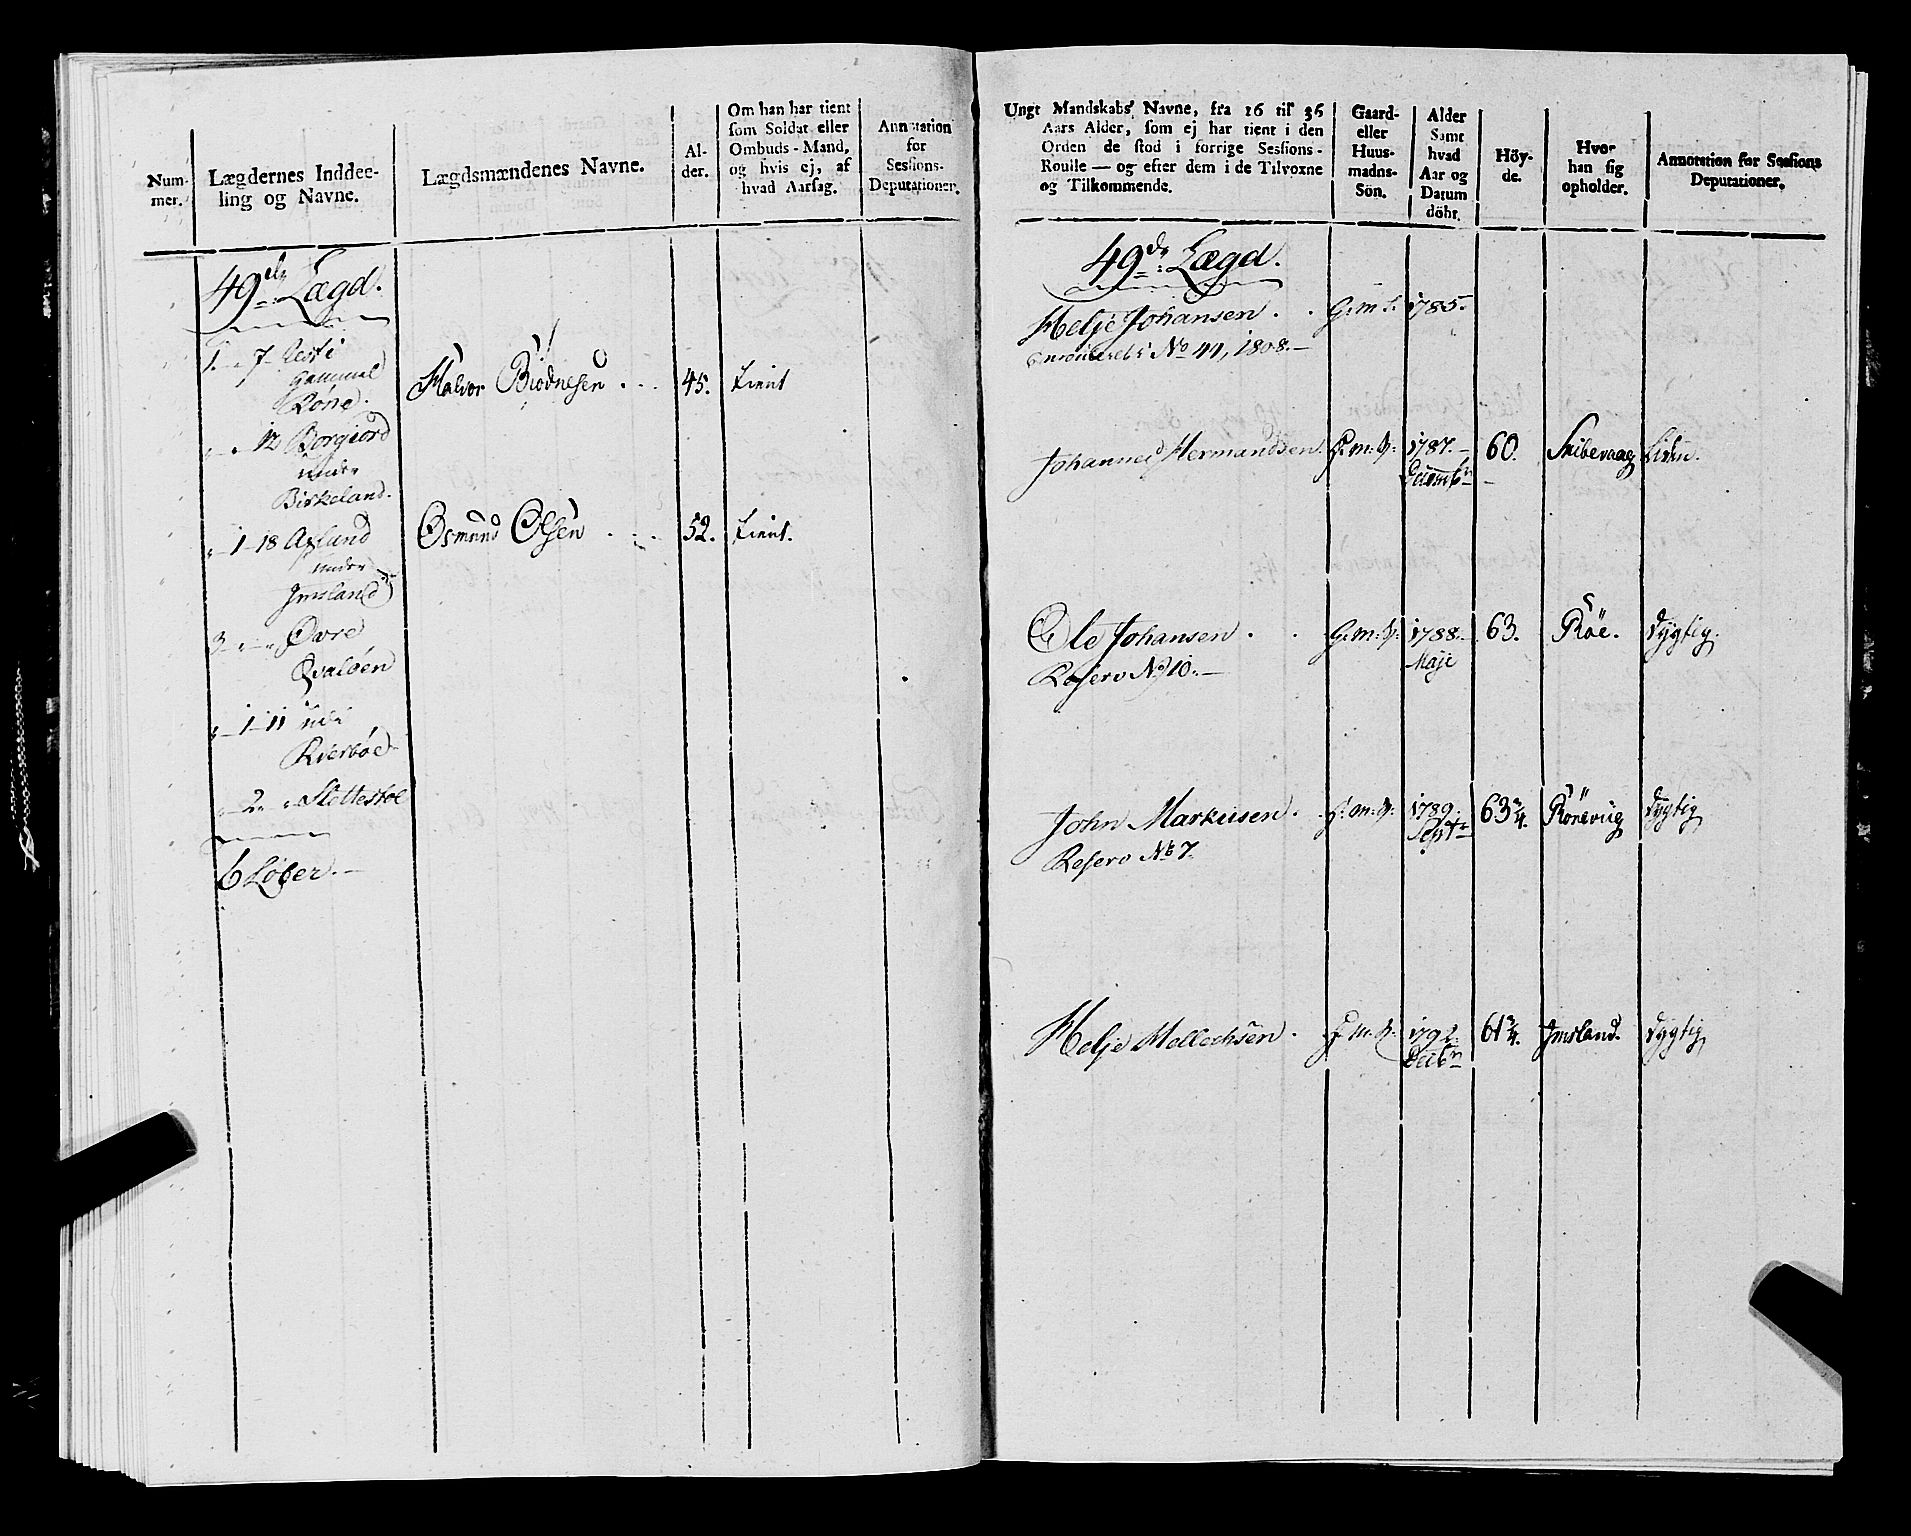 Num-
mer.
Lægdernes Inddee-
ling og Navne.
Lægdsmændenes Navne.
Al-
der.
Om han har tient
som Soldat eller
Ombuds-Mand,
og hvis ej, af
hvad Aarsag.
Annotation
for
Sessions-
Deputationer.
49de Lægd.
1. „ 7 Rest i
Gammel
Røne.
Halvor Biødnesen . . . 45. tient
„ „ 12 Borgiord
under
Birkeland.
„ 1 18 Axland
under
Imsland
Osmund Olsen . . . 52. tient.
3 „ „ Øvre
Qvaløen
„ 1 11 udi
Kverbøe
„ 2 „ Slettestøe
6 Løber.
Ungt Mandskabs Navne, fra 16 til 36
Aars Alder, som ej har tient i den
Orden de stod i forrige Sessions-
Roulle — og efter dem i de Tilvoxne
og Tilkommende.
Gaard-
eller
Huus-
madns-
Sön.
Alder
Samt
hvad
Aar og
Datum
döbt.
Höy-
de.
Hvor
han sig
opholder.
Annotation for Sessions
Deputationer.
49de Lægd.
Helje Johansen . . G. m. S. 1785.
No 41, 1808.
Johannes Hermandsen. H. m. S. 1787. 60. Skibevaag Liden.
Decembr
Ole Johansen . . G. m. S. 1788. 63. Røe. dygtig.
Reserv No 10. Maji
John Markusen . H. m. S. 1789. 63 3/4. Rønevig dygtig
Reserv No 7. Septr
Helje Mellechsen . H. m. S. 1792. 61 3/4. Imsland. dygtig
Decbr